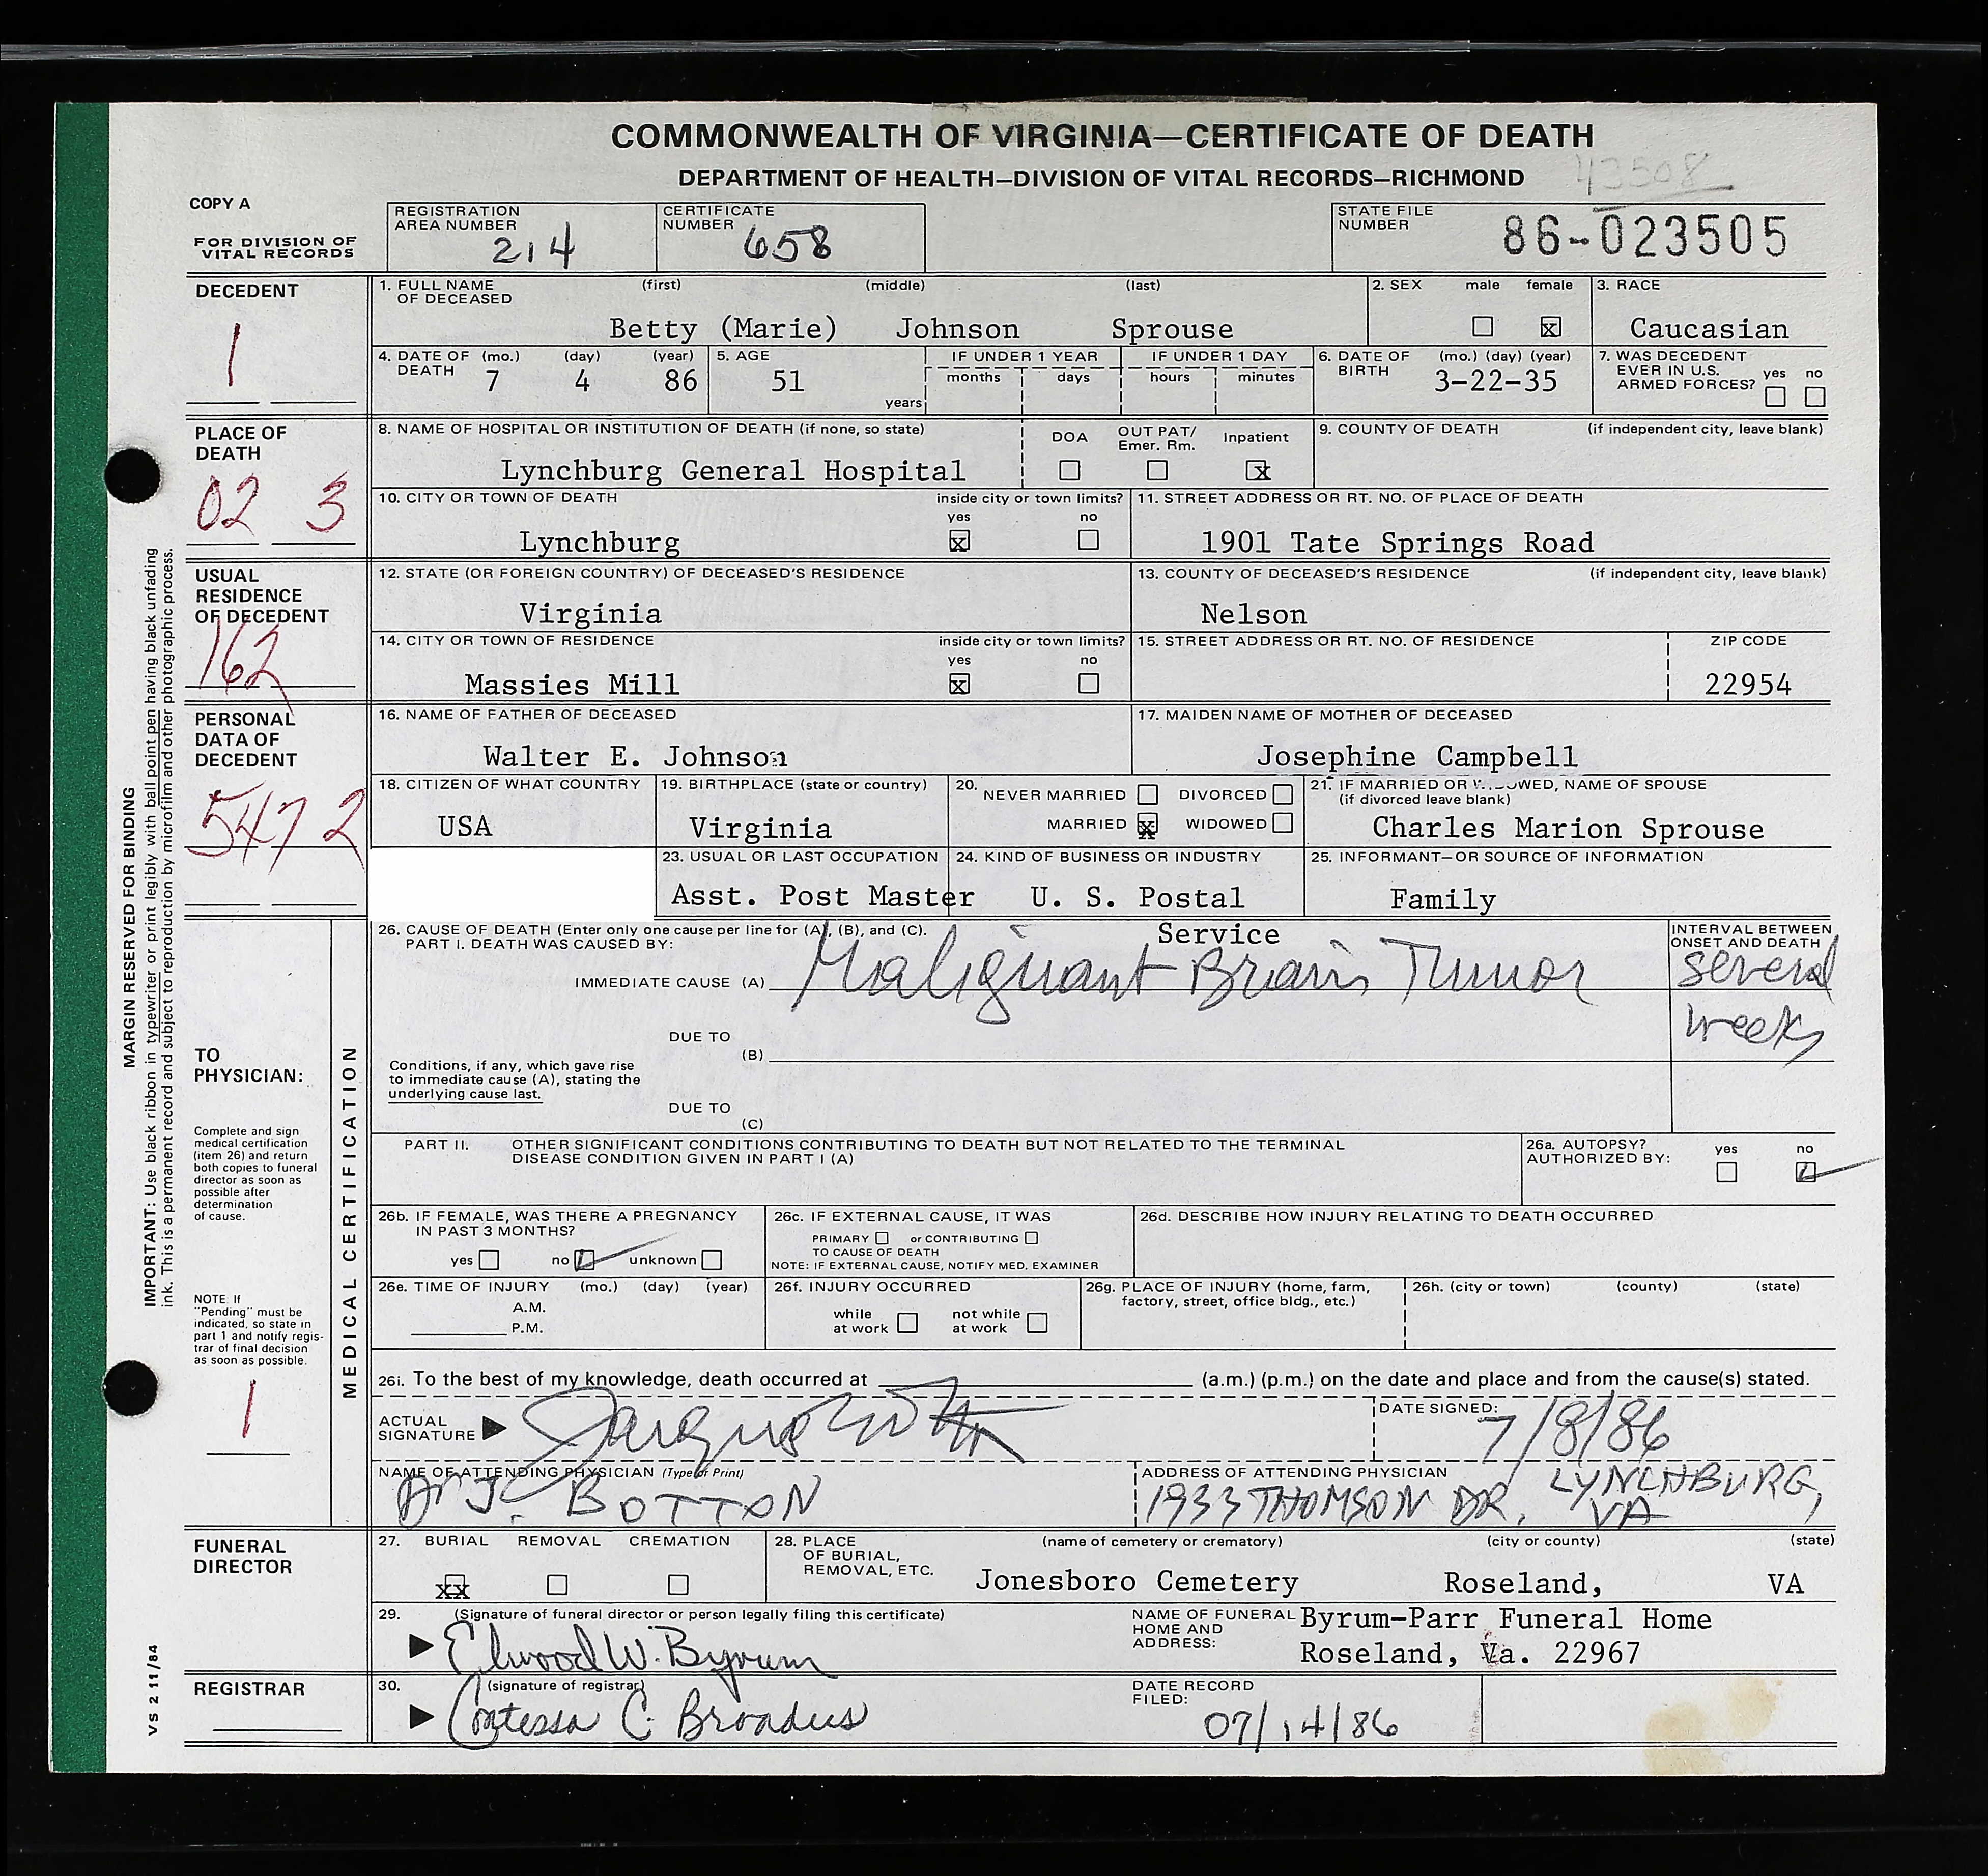 COMMONWEALTH OF VIRGINIA—CERTIFICATE OF DEATH
DEPARTMENT OF HEALTH—DIVISION OF VITAL RECORDS—RICHMOND
43508
COPY A
FOR DIVISION OF
VITAL RECORDS
REGISTRATION
AREA NUMBER
214
CERTIFICATE
NUMBER
658
STATE FILE
NUMBER
86-023505
DECEDENT
1
1. FULL NAME (first) (middle) (last)
OF DECEASED
Betty (Marie) Johnson Sprouse
2. SEX male female
x
3. RACE
Caucasian
4. DATE OF (mo.) (day) (year)
DEATH 7 4 86
5. AGE
51
years
IF UNDER 1 YEAR
months days
IF UNDER 1 DAY
hours minutes
6. DATE OF (mo.) (day) (year)
BIRTH
3-22-35
7. WAS DECEDENT
EVER IN U.S.
ARMED FORCES?
yes no
PLACE OF
DEATH
02 3
8. NAME OF HOSPITAL OR INSTITUTION OF DEATH (if none, so state)
Lynchburg General Hospital
DOA OUT PAT/ Inpatient
Emer. Rm.
x
9. COUNTY OF DEATH (if independent city, leave blank)
10. CITY OR TOWN OF DEATH inside city or town limits?
yes no
Lynchburg x
11. STREET ADDRESS OR RT. NO. OF PLACE OF DEATH
1901 Tate Springs Road
USUAL
RESIDENCE
OF DECEDENT
162
12. STATE (OR FOREIGN COUNTRY) OF DECEASED'S RESIDENCE
Virginia
13. COUNTY OF DECEASED'S RESIDENCE (if independent city, leave blank)
Nelson
14. CITY OR TOWN OF RESIDENCE inside city or town limits?
yes no
Massies Mill x
15. STREET ADDRESS OR RT. NO. OF RESIDENCE
ZIP CODE
22954
PERSONAL
DATA OF
DECEDENT
5472
16. NAME OF FATHER OF DECEASED
Walter E. Johnson
17. MAIDEN NAME OF MOTHER OF DECEASED
Josephine Campbell
18. CITIZEN OF WHAT COUNTRY
USA
19. BIRTHPLACE (state or country)
Virginia
20.
NEVER MARRIED DIVORCED
MARRIED x WIDOWED
21. IF MARRIED OR WIDOWED, NAME OF SPOUSE
(if divorced leave blank)
Charles Marion Sprouse
23. USUAL OR LAST OCCUPATION
Asst. Post Master
24. KIND OF BUSINESS OR INDUSTRY
U. S. Postal
Service
25. INFORMANT—OR SOURCE OF INFORMATION
Family
MARGIN RESERVED FOR BINDING
IMPORTANT: Use black ribbon in typewriter or print legibly with ball point pen having black unfading
ink. This is a permanent record and subject to reproduction by microfilm and other photographic process.
TO
PHYSICIAN:
Complete and sign
medical certification
(item 26) and return
both copies to funeral
director as soon as
possible after
determination
of cause.
NOTE: If
"Pending" must be
indicated, so state in
part 1 and notify regis-
trar of final decision
as soon as possible.
1
MEDICAL CERTIFICATION
26. CAUSE OF DEATH (Enter only one cause per line for (A), (B), and (C).
PART I. DEATH WAS CAUSED BY:
IMMEDIATE CAUSE (A)
Malignant Brain Tumor
INTERVAL BETWEEN
ONSET AND DEATH
several
weeks
DUE TO
(B)
Conditions, if any, which gave rise
to immediate cause (A), stating the
underlying cause last.
DUE TO
(C)
PART II. OTHER SIGNIFICANT CONDITIONS CONTRIBUTING TO DEATH BUT NOT RELATED TO THE TERMINAL
DISEASE CONDITION GIVEN IN PART I (A)
26a. AUTOPSY?
AUTHORIZED BY:
yes no
26b. IF FEMALE, WAS THERE A PREGNANCY
IN PAST 3 MONTHS?
yes no unknown
26c. IF EXTERNAL CAUSE, IT WAS
PRIMARY or CONTRIBUTING
TO CAUSE OF DEATH
NOTE: IF EXTERNAL CAUSE, NOTIFY MED. EXAMINER
26d. DESCRIBE HOW INJURY RELATING TO DEATH OCCURRED
26e. TIME OF INJURY (mo.) (day) (year)
A.M.
P.M.
26f. INJURY OCCURRED
while not while
at work at work
26g. PLACE OF INJURY (home, farm,
factory, street, office bldg., etc.)
26h. (city or town) (county) (state)
26i. To the best of my knowledge, death occurred at (a.m.) (p.m.) on the date and place and from the cause(s) stated.
ACTUAL
SIGNATURE
DATE SIGNED:
7/8/86
NAME OF ATTENDING PHYSICIAN (Type or Print)
Dr J. BOTTON
ADDRESS OF ATTENDING PHYSICIAN
1933 THOMSON DR, LYNCHBURG,
VA
FUNERAL
DIRECTOR
27. BURIAL REMOVAL CREMATION
xx
28. PLACE
OF BURIAL,
REMOVAL, ETC.
(name of cemetery or crematory) (city or county) (state)
Jonesboro Cemetery Roseland, VA
29. (Signature of funeral director or person legally filing this certificate)
Elwood W. Byrum
NAME OF FUNERAL
HOME AND
ADDRESS:
Byrum-Parr Funeral Home
Roseland, Va. 22967
REGISTRAR
30. (signature of registrar)
Contessa C. Broadus
DATE RECORD
FILED:
07/14/86
VS 2 11/84